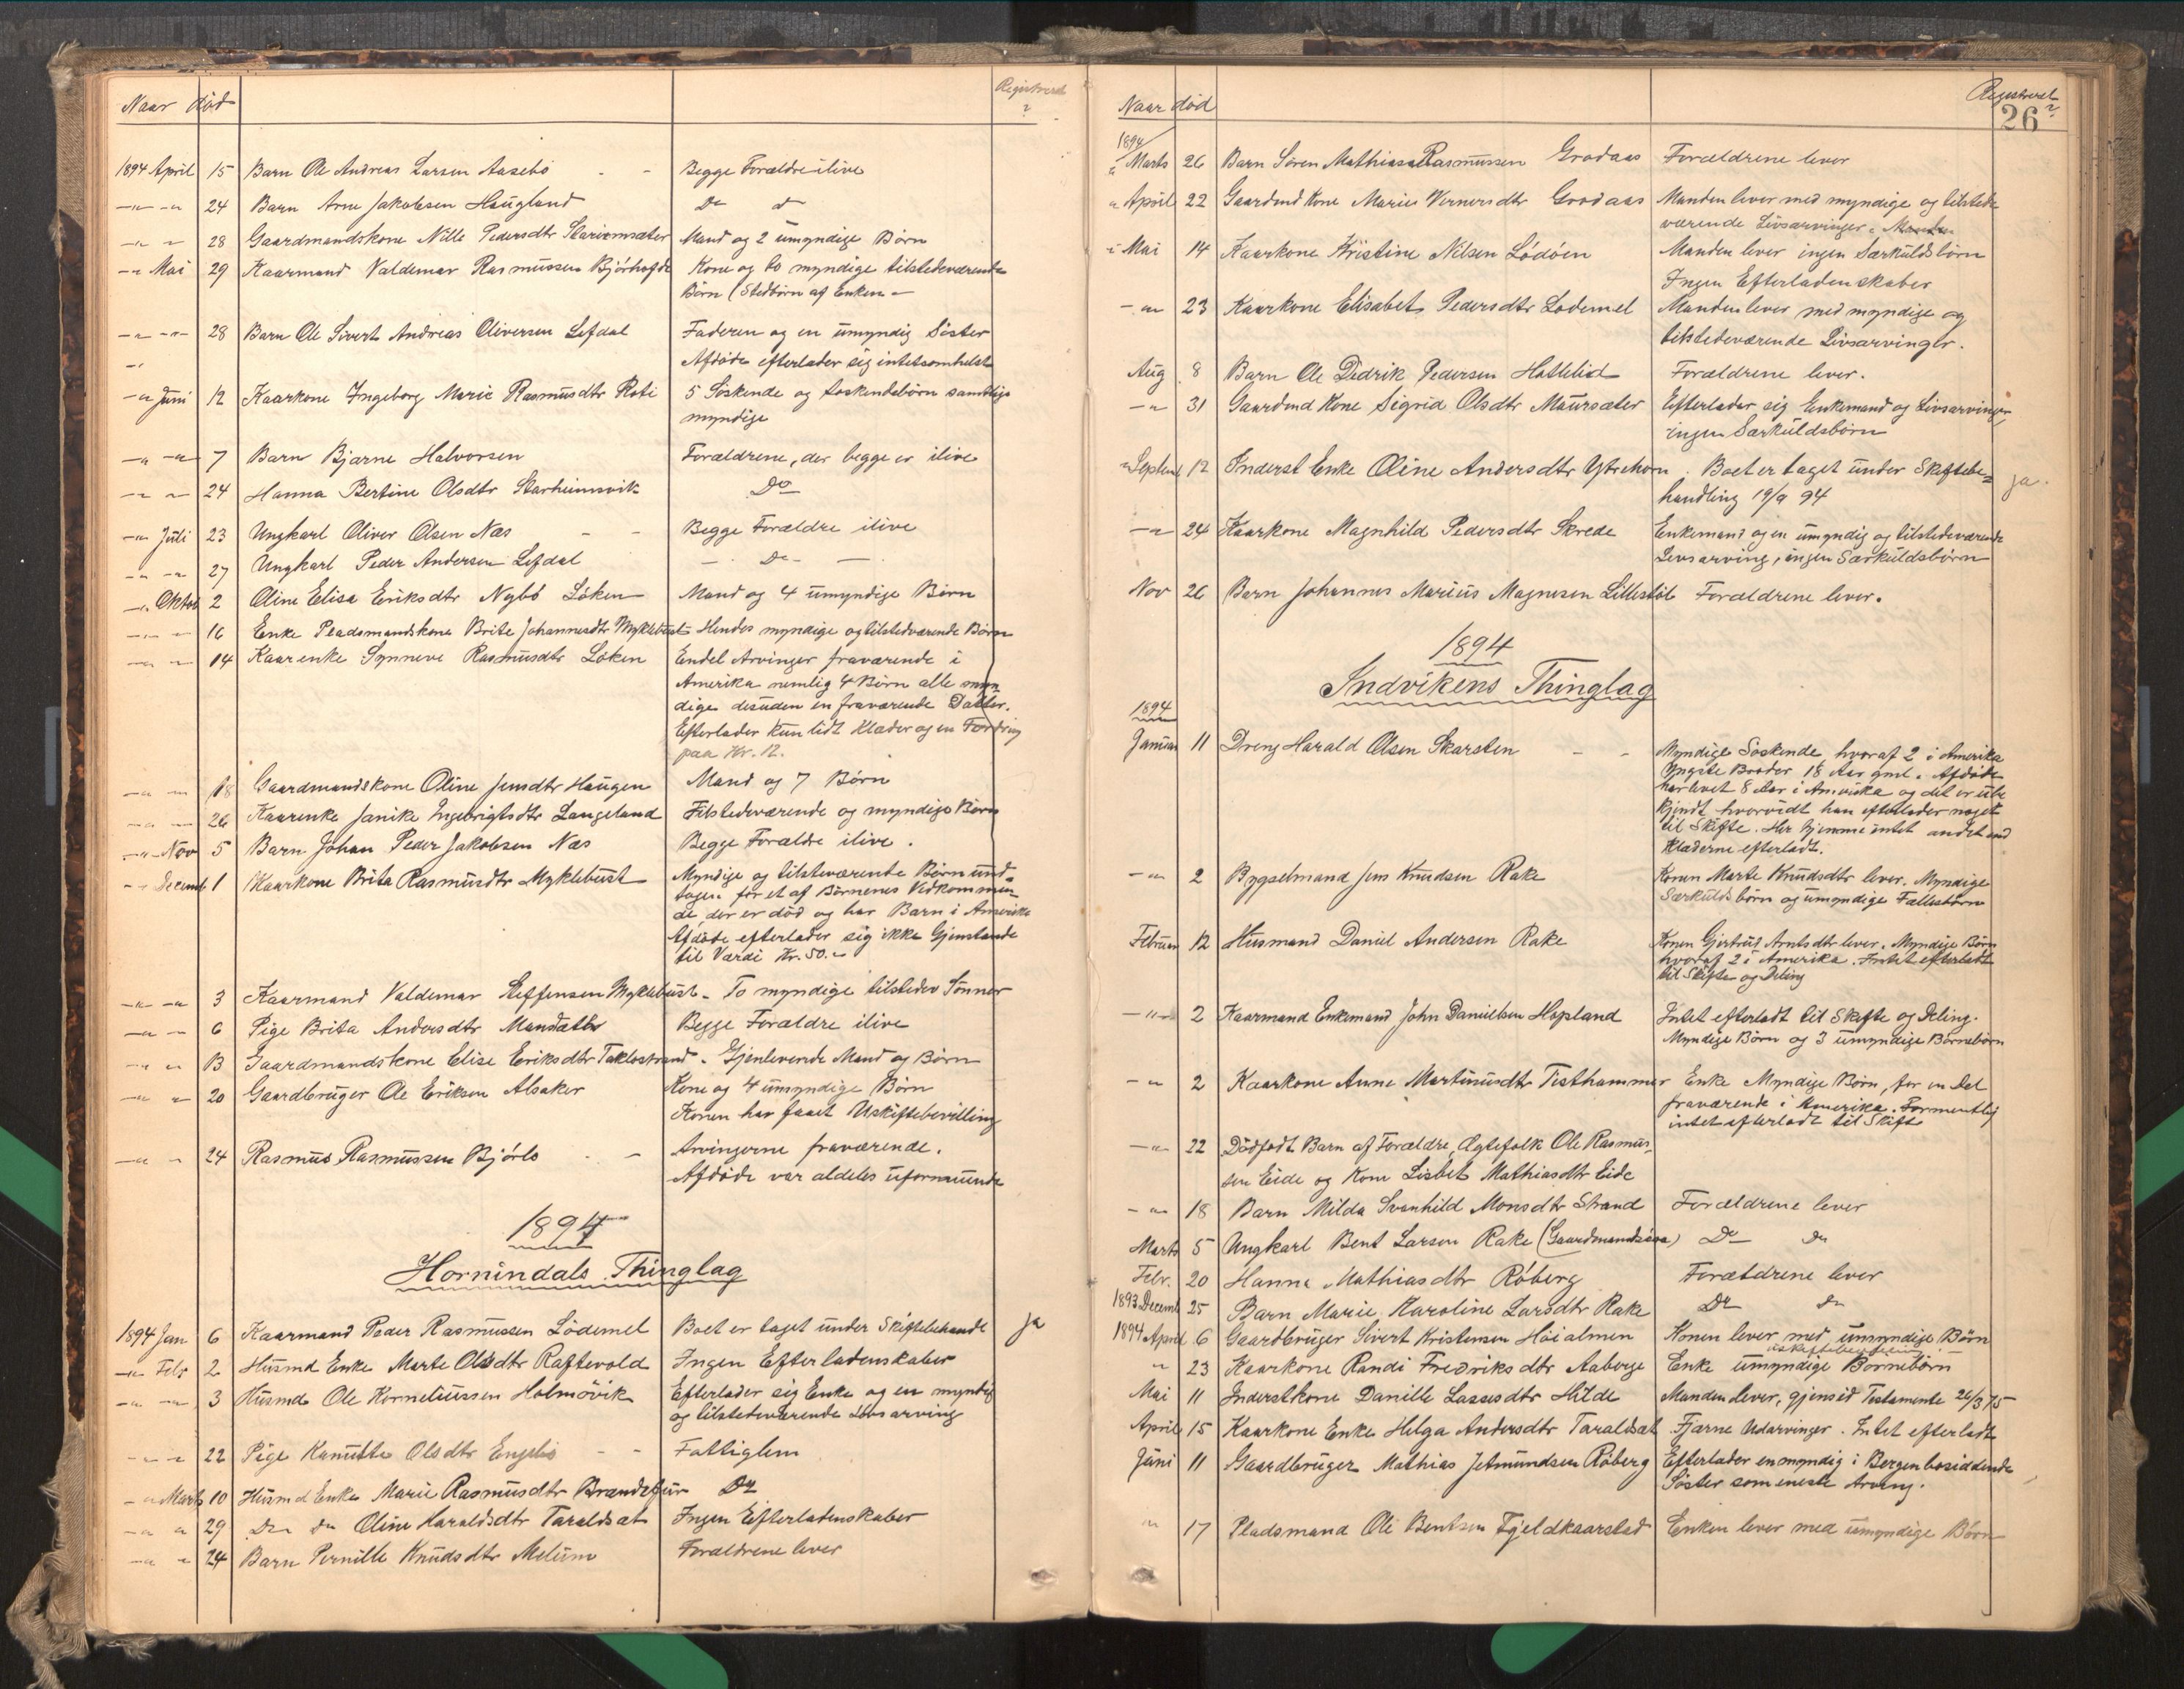 Naar død
Registrerd
?
1894 April 15 Barn Ole Andreas Larsen Aasebø - - Begge Forældre ilive
-"- -" 24 Barn Arne Jakobsen Haugland Do d
-"- " 28 Gaardmandskone Nille Pedersdtr Starivmsæter Mand og 2 umyndige Børn
-" Mai 29 Kaarmand Valdemar Rasmussen Bjørhofde Kone og to myndige tilstedeværende
Børn (Stedbørn af Enken -
-"- -"- 28 Barn Ole Sivert Andreas Oliversen Lefdal Faderen og en umyndig Søster
Afdøde efterlader sig intetsomhelst
-" Juni 12 Kaarkone Ingeborg Marie Rasmusdtr Roti 5 Søskende og søskendebørn samtlige
myndige
-" -" 7 Barn Bjarne Halvorsen Forældrene, der begge er ilive
-" -" 24 Hanna Bertine Olsdtr Starheimsvik Do
-" Juli 23 Ungkarl Oliver Olsen Næs - - Begge Forældre ilive
-" -" 27 Ungkarl Peder Andersen Lefdal - Do - -
-" Oktob 2 Oline Elisa Eriksdtr Nybø Løken Mand og 4 umyndige Børn
-"- " 16 Enke Pladsmandskone Brite Johannesdtr Myklebust Hendes myndige og tilstedværende Børn
-" -" 14 Kaarenke Synneve Rasmusdtr Løken Endel Arvinger fraværende i
Amerika nemlig 4 Børn alle myn-
dige desuden en fraværende Datter.
Efterlader kun lidt Klæder og en Fordring
paa Kr. 12.
-" -" 18 Gaardmandskone Oline Jensdtr Haugen Mand og 7 Børn
-" -" 26 Kaarenke Janike Ingebrigtsdtr Langeland Tilstedeværende og myndige Børn
-" Nov 5 Barn Johan Peder Jakobsen Næs Begge Forældre ilive.
-" Decemb 1 Kaarkone Brita Rasmusdtr Myklebust Myndige og tilsteværente Børn und-
tagen for et af Børnenes Vedkommen
de, der er død og har Barn i Amerika
Afdøde efterlader sig ikke Gjenstande
til Værdi Kr. 50.-
-" -" 3 Kaarmand Valdemar Steffensen Myklebust - To myndige tilstedev Sønner
-" -" 6 Pige Brita Andersdtr Mandsæter Begge Forældre ilive
-" " 13 Gaardmandskone Elise Eriksdtr Taklostrand - Gjenlevende Mand og Børn
-" " 20 Gaardbruger Ole Eriksen Alsaker Kone og 4 umyndige Børn
Konen har faaet Uskiftebevilling
-" " 24 Rasmus Rasmussen Bjørlo - - Arvingerne fraværende.
Afdøde var aldeles uformuende
1894
Hornindals Thinglag
1894 Jan 6 Kaarmand Peder Rasmussen Lødemel Boet er taget under Skiftebehandl ja
-" Febr 2 Husmd Enke Marte Olsdtr Raftevold Ingen Efterladenskaber
-" -" 3 Husmd Ole Korneliussen Holmøvik Efterlader sig Enke og en myndig
og tilstedeværende Livsarving
-" " 22 Pige Kanutte Olsdtr Engebø - - Fattiglem
-" Marts 10 Husmd Enke Marie Rasmusdtr Brandsfur Do
-" " 29 Do Do Oline Haraldsdtr Taraldsæt Ingen Efterladenskaber
-" " 24 Barn Pernille Knudsdtr Melum Forældrene lever
Naar død
Registrerd
?
26
1894
" Marts 26 Barn Søren Mathias Rasmussen Grodaas Forældrene lever
" April 22 Gaardmd Kone Maries Vernersdtr Grodaas Manden lever med myndige og tilstede
værende Livsarvinger.
" Mai 14 Kaarkone Kristine Nilsen Lødøen Manden lever ingen Særkuldsbørn
Ingen Efterladenskaber
- " 23 Kaarkone Elisabet Pedersdtr Lødemel Manden lever med myndige og
tilstedeværende Livsarvinger.
Aug 8 Barn Ole Didrik Pedersen Hattelid Forældrene lever.
-" 31 Gaardmd Kone Sigrid Olsdtr Maursæter Efterlader sig Enkemand og Livsarvinger
ingen Særkuldsbørn
" Septemb 12 Inderst Enke Oline Andersdtr Ytrehorn. Boet er taget under Skiftebe- ja.
handling 19/9 94
-" 24 Kaarkone Magnhild Pedersdtr Skrede Enkemand og en umyndig og tilstedeværende
Livsarving, ingen Særkuldsbørn
Nov 26 Barn Johannes Marius Magnesen Lillestøl Forældrene lever.
1894
Indvikens Thinglag
1894
Januar 11 Dreng Harald Olsen Skarsten - - Myndige Søskende hvoraf 2 i Amerika
Yngste Broder 18 Aar gml. Afdøde
har levet 8 Aar i Amerika og det er ube
kjendt hvorvidt han efterlader noget
til Skifte. Her hjemme intet andet end
Klæderne efterladt.
-" 2 Bygselmand Jens Knudsen Rake Konen Marte Knudsdtr lever. Myndige
Særkuldsbørn og umyndige Fællesbørn
Februar 12 Husmand Daniel Andersen Rake Konen Gjertrud Arntsdtr lever. Myndige Børn
hvoraf 2 i Amerika. Intet efterladt
til Skifte og Deling
-" 2 Kaarmand Enkemand John Danielsen Hopland Intet efterladt til Skifte og Deling.
Myndige Børn og 3 umyndige Børnebørn
-" 2 Kaarkone Anne Martinusdtr Tisthammer Enke Myndige Børn, for en Del
fraværende i Amerika. Formentlig
intet efterladt til Skifte
-" 22 Dødfødt Barn af Forældre, Ægtefolk Ole Rasmus-
sen Eide og Kone Lisbet Mathiasdtr Eide
-" 18 Barn Milda Svanhild Monsdtr Strand Forældrene lever
Marts 5 Ungkarl Bent Larsen Rake (Gaardmandssøn) Do Do
Febr. 20 Hanna Mathiasdtr Røberg Forældrene lever
1893 Decemb 25 Barn Marie Karoline Larsdtr Rake Do Do
1894 April 6 Gaardbruger Sivert Kristensen Høialmen Konen lever med umyndige Børn
" 23 Kaarkone Randi Fredriksdtr Aaberge Enke umyndige Børnebørn
Mai 11 Inderstkone Danille Lassesdtr Hilde Manden lever, gjensid Testamente 26/3 75
April 15 Kaarkone Enke Helga Andersdtr Taraldsæt Fjærne Udarvinger. Intet efterladt
Juni 11 Gaardbruger Mathias Jetmundsen Røberg Efterlader en myndig i Bergen bosiddende
Søster som eneste Arving.
" 17 Pladsmand Ole Bentsen Fjeldkaarstad Enken lever med umyndige Børn